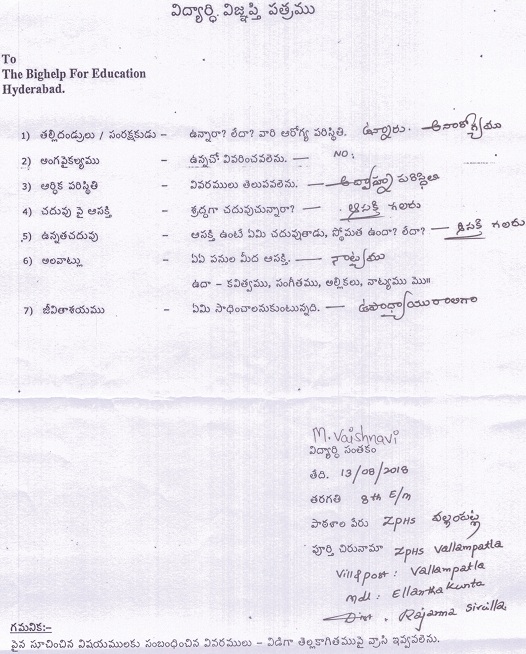 విద్యార్ధి విజ్ఞప్తి పత్రము
To
The Bighelp For Education
Hyderabad.
1) తల్లిదండ్రులు / సంరక్షకుడు – ఉన్నారా? లేదా? వారి ఆరోగ్య పరిస్థితి. ఉన్నారు. అనారోగ్యము
2) అంగవైకల్యము – ఉన్నచో వివరించవలెను. — NO.
3) ఆర్ధిక పరిస్థితి – వివరములు తెలుపవలెను. — పరిస్థితి
4) చదువు పై ఆసక్తి – శ్రద్ధగా చదువుచున్నారా? — ఆసక్తి గలరు
5) ఉన్నతచదువు – ఆసక్తి ఉంటే ఏమి చదువుతాడు, స్థోమత ఉందా? లేదా? — ఆసక్తి గలరు
6) అలవాట్లు – ఏఏ పనుల మీద ఆసక్తి. — నాట్యము
ఉదా – కవిత్వము, సంగీతము, అల్లికలు, నాట్యము మొ॥
7) జీవితాశయము – ఏమి సాధించాలనుకుంటున్నది. — ఉపాధ్యాయురాలిగా
M. Vaishnavi
విద్యార్ధి సంతకం
తేది. 13/08/2018
తరగతి 8th E/m
పాఠశాల పేరు ZPHS వల్లంపట్ల
పూర్తి చిరునామా ZPHS Vallampatla
Vill & post : Vallampatla
Mdl : Ellantha kunta
Dist . Rajanna Sircilla.
గమనిక:-
పైన సూచించిన విషయములకు సంబంధించిన వివరములు – విడిగా తెల్లకాగితముపై వ్రాసి ఇవ్వవలెను.